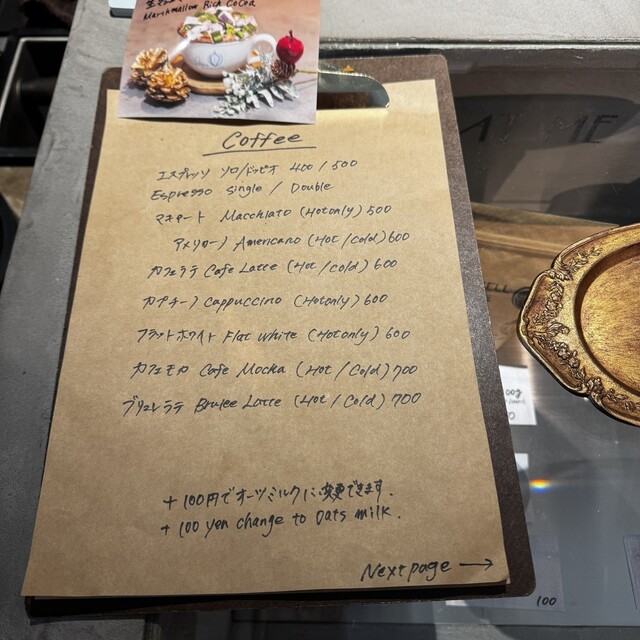 Marshmallow Rich Cocoa
Coffee
エスプレッソ ソロ/ドッピオ 400 / 500
Espresso Single / Double
マキアート Macchiato (Hot only) 500
アメリカーノ Americano (Hot / Cold) 600
カフェラテ Cafe Latte (Hot / Cold) 600
カプチーノ Cappuccino (Hot only) 600
フラットホワイト Flat White (Hot only) 600
カフェモカ Cafe Mocha (Hot / Cold) 700
ブリュレラテ Brulee Latte (Hot / Cold) 700
+ 100円でオーツミルクに変更できます.
+ 100 yen change to Oats milk.
Next page →
AT ME
ELL
100